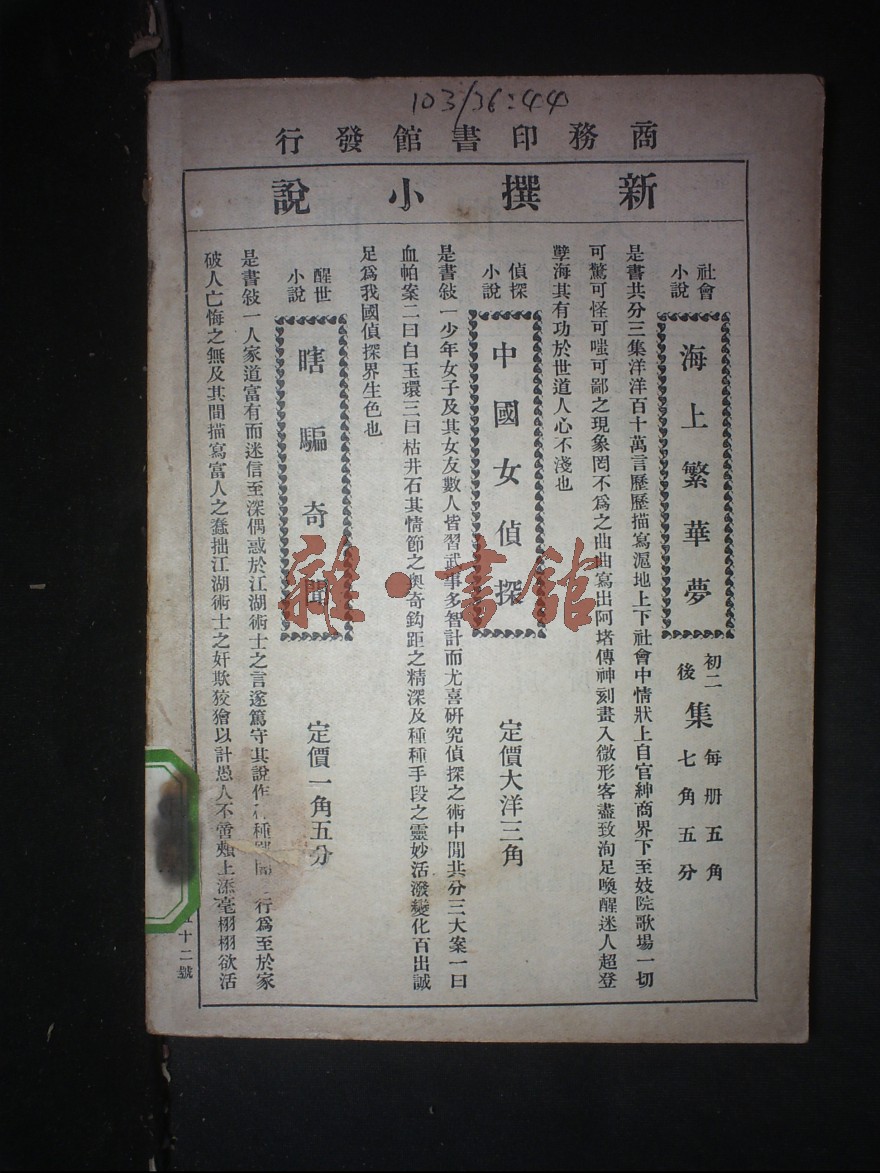 103/36:44
商務印書館發行
新撰小說
社會小說
海上繁華夢
初二集每册五角
後集七角五分
是書共分三集洋洋百十萬言歷歷描寫滬地上下社會中情狀上自官紳商界下至妓院歌場一切
可驚可怪可嗤可鄙之現象罔不爲之曲曲寫出阿堵傳神刻畫入微形容盡致洵足喚醒迷人超登
孽海其有功於世道人心不淺也
偵探小說
中國女偵探
定價大洋三角
是書敍一少年女子及其女友數人皆習武事多智計而尤喜研究偵探之術中間共分三大案一曰
血帕案二曰白玉環三曰枯井石其情節之奧奇鈎距之精深及種種手段之靈妙活潑變化百出誠
足爲我國偵探界生色也
醒世小說
瞎騙奇聞
定價一角五分
是書敍一人家道富有而迷信至深偶惑於江湖術士之言遂篤守其說作種種行爲至於家
破人亡悔之無及其間描寫富人之蠢拙江湖術士之奸欺狡獪以計愚人不啻頰上添毫栩栩欲活
十二號
雜·書館